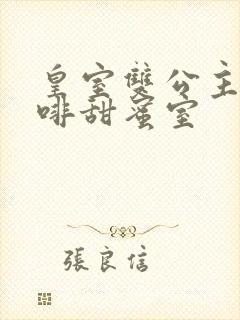 皇室雙公主
啡甜蜜室
張良信